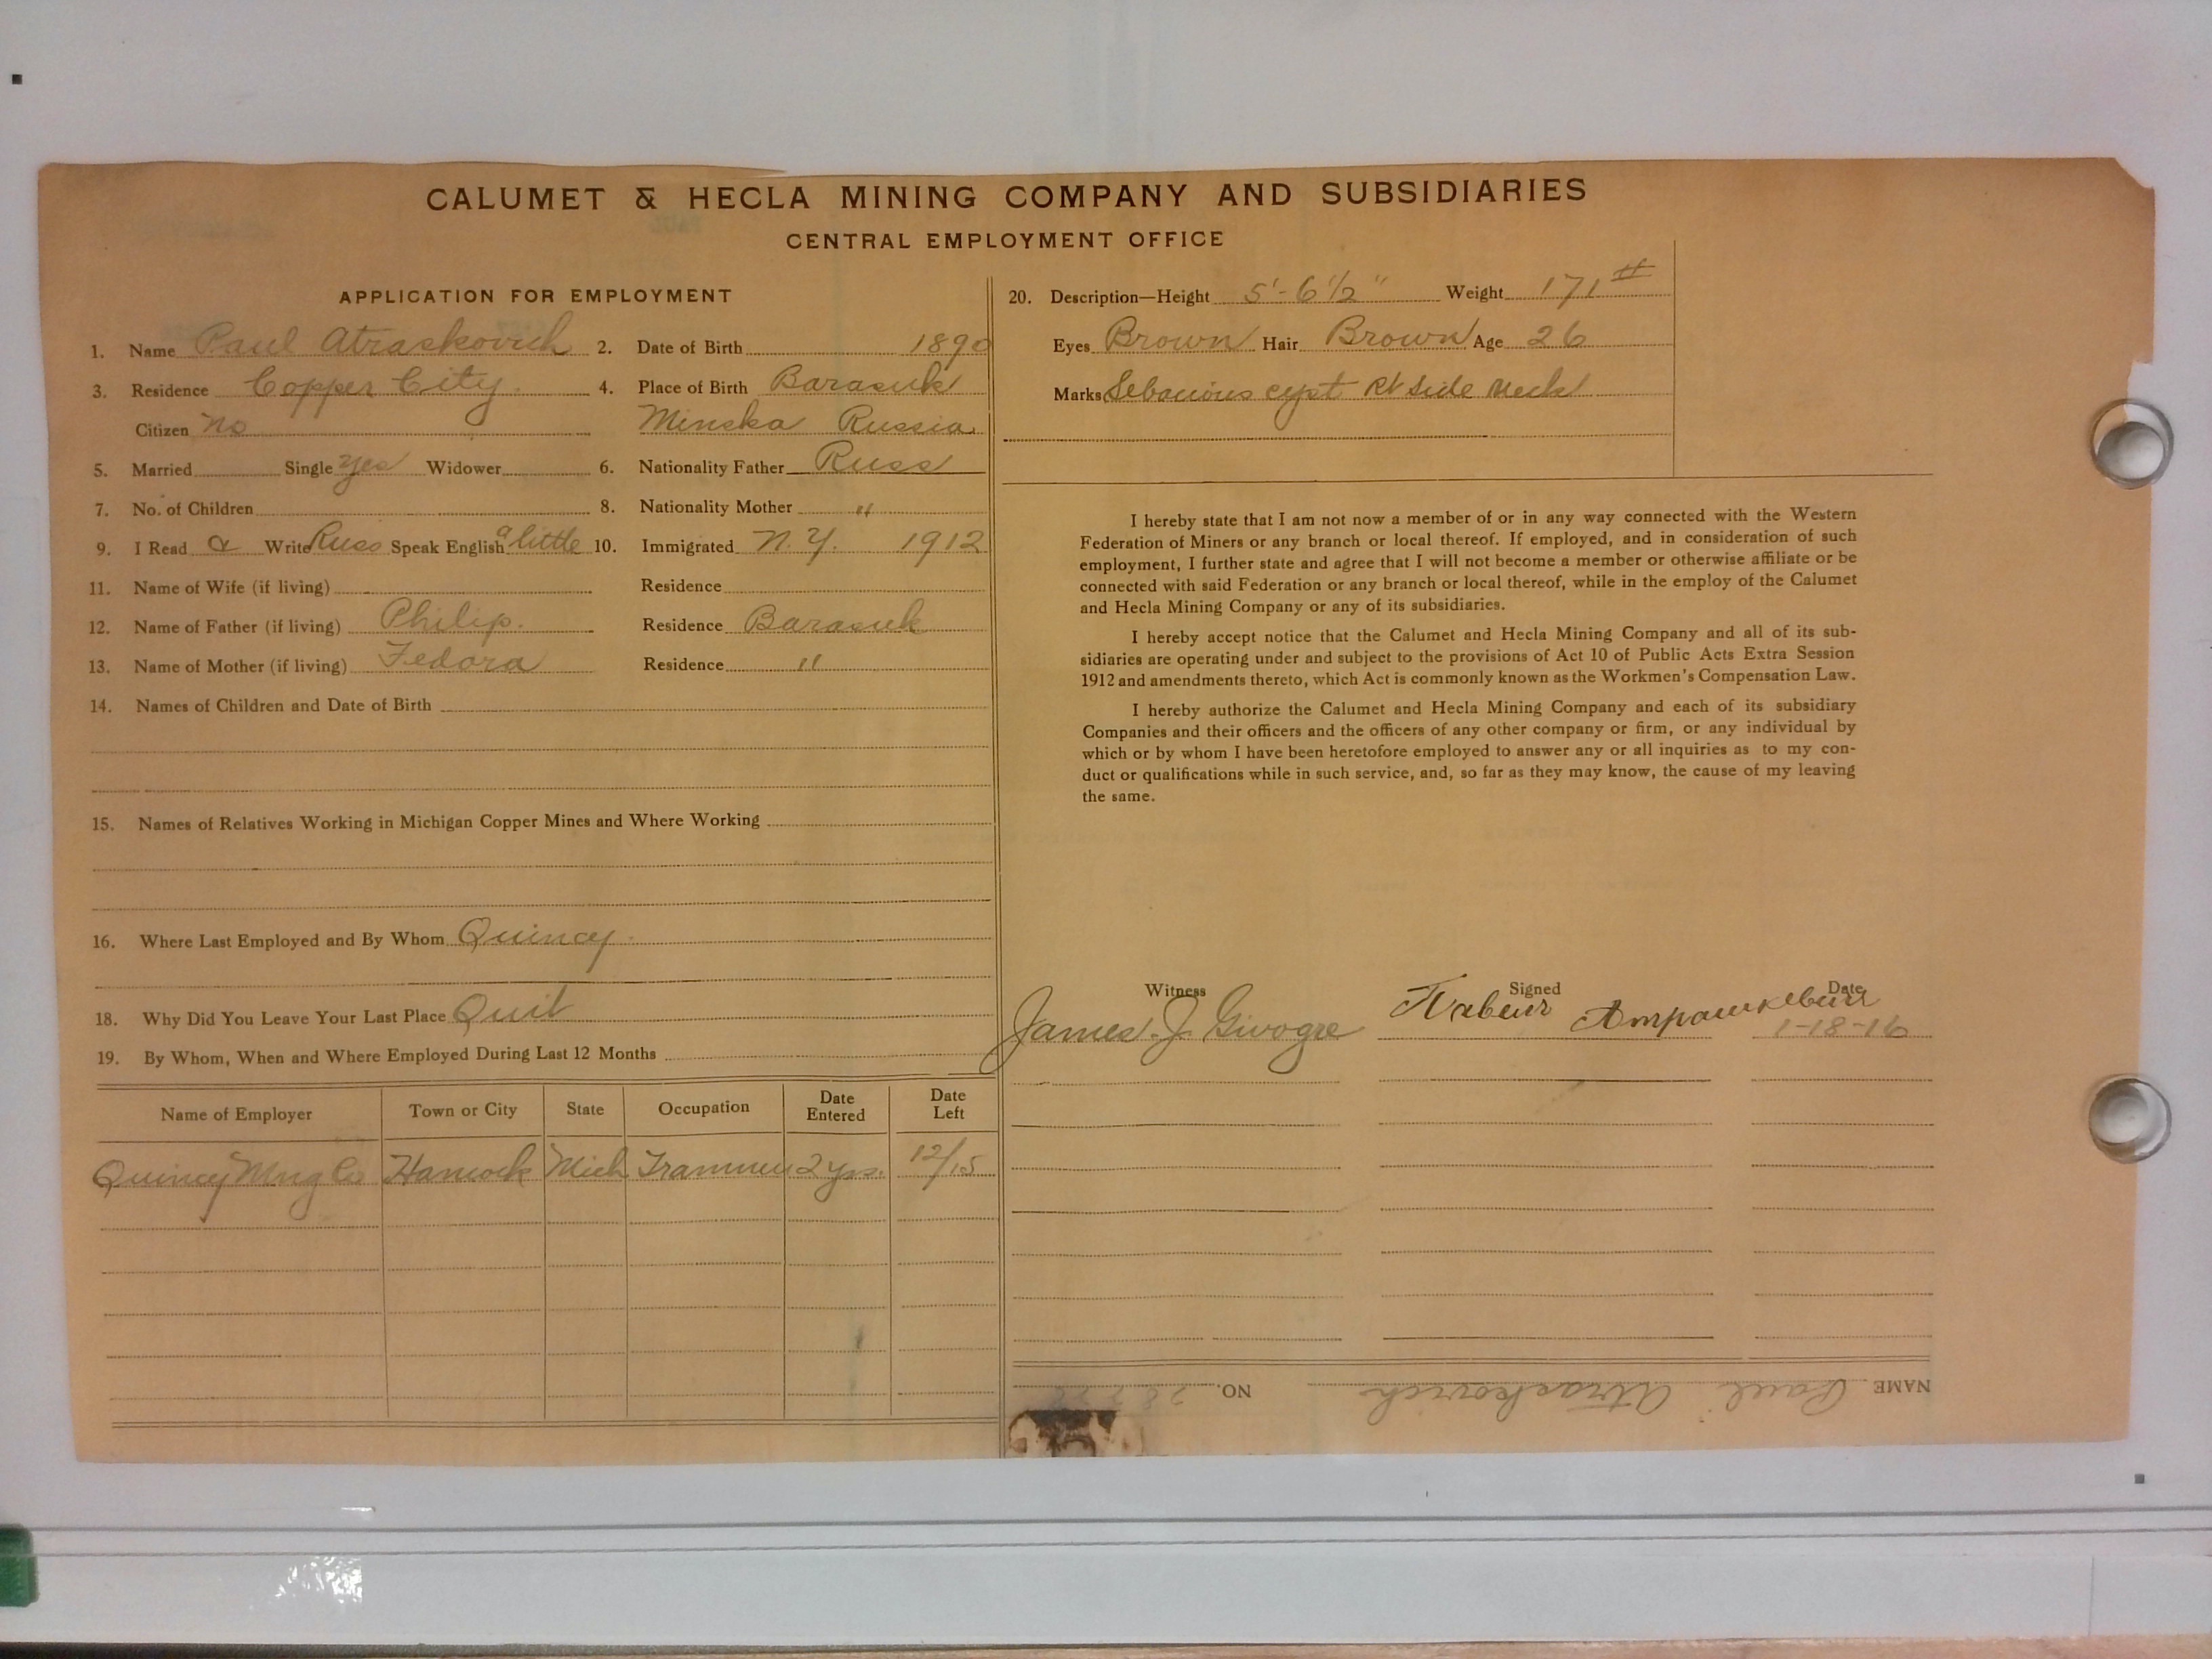 CALUMET & HECLA MINING COMPANY AND SUBSIDIARIES
CENTRAL EMPLOYMENT OFFICE
APPLICATION FOR EMPLOYMENT
1. Name Paul Atraskovich 2. Date of Birth 1890
3. Residence Copper City. 4. Place of Birth Barasuk
Citizen No Minska Russia
5. Married Single Yes Widower 6. Nationality Father Russ
7. No. of Children 8. Nationality Mother "
9. I Read & Write Russ Speak English a little 10. Immigrated N.Y. 1912
11. Name of Wife (if living) Residence
12. Name of Father (if living) Philip. Residence Barasuk
13. Name of Mother (if living) Fedora Residence "
14. Names of Children and Date of Birth
15. Names of Relatives Working in Michigan Copper Mines and Where Working
16. Where Last Employed and By Whom Quincy
18. Why Did You Leave Your Last Place Quit
19. By Whom, When and Where Employed During Last 12 Months
Name of Employer Town or City State Occupation Date Entered Date Left
Quincy Mng Co Hancock Mich Trammer 2 yrs. 12/15
20. Description—Height 5'-6 1/2" Weight 171 #
Eyes Brown Hair Brown Age 26
Marks Sebacious cyst Rt side neck
I hereby state that I am not now a member of or in any way connected with the Western
Federation of Miners or any branch or local thereof. If employed, and in consideration of such
employment, I further state and agree that I will not become a member or otherwise affiliate or be
connected with said Federation or any branch or local thereof, while in the employ of the Calumet
and Hecla Mining Company or any of its subsidiaries.
I hereby accept notice that the Calumet and Hecla Mining Company and all of its sub-
sidiaries are operating under and subject to the provisions of Act 10 of Public Acts Extra Session
1912 and amendments thereto, which Act is commonly known as the Workmen's Compensation Law.
I hereby authorize the Calumet and Hecla Mining Company and each of its subsidiary
Companies and their officers and the officers of any other company or firm, or any individual by
which or by whom I have been heretofore employed to answer any or all inquiries as to my con-
duct or qualifications while in such service, and, so far as they may know, the cause of my leaving
the same.
Witness Signed Date
James. J. Givogre 1-18-16
NAME Paul Atraskovich NO.